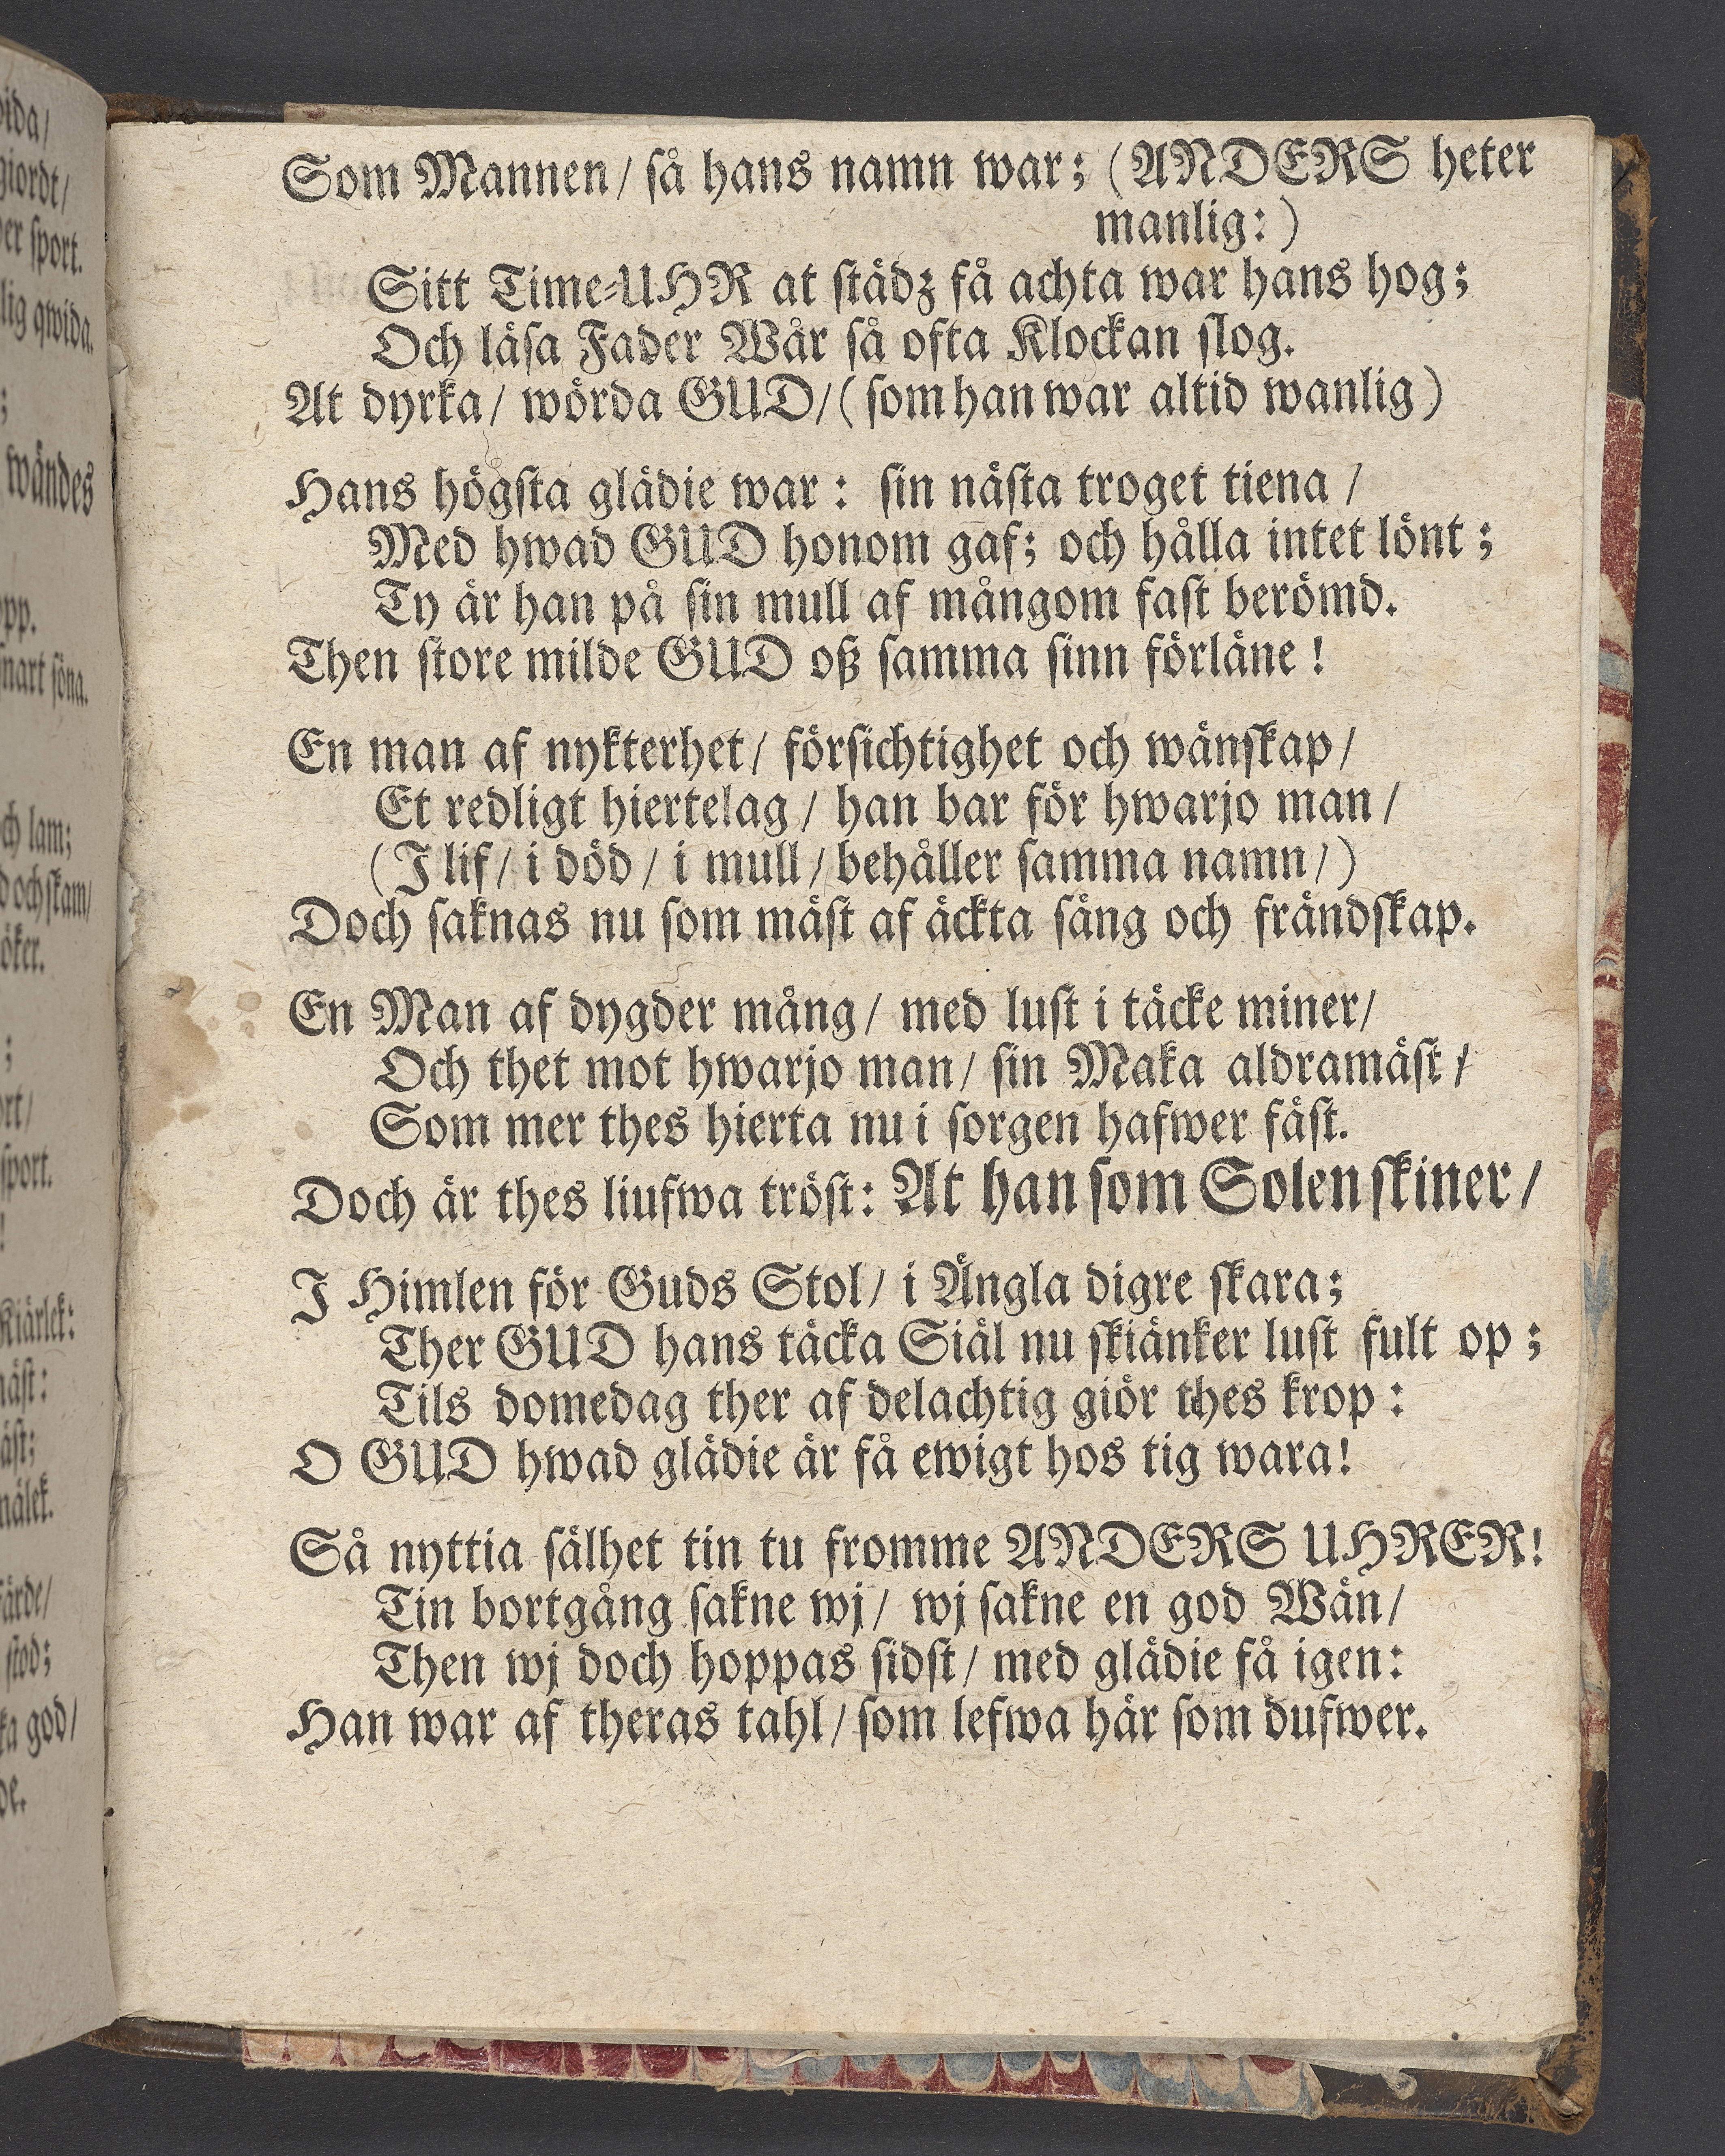 Som Mannen/ så hans namn war; (ANDERS heter
manlig:)
Sitt Time-UHR at städz få achta war hans hog;
Och läsa Fader Wår så ofta Klockan slog.
At dyrka/ wörda GUD/ (som han war altid wanlig)
Hans högsta glädie war: sin nästa troget tiena/
Med hwad GUD honom gaf; och hålla intet lönt;
Ty är han på sin mull af mångom fast berömd.
Then store milde GUD oß samma sinn förläne!
En man af nykterhet/ försichtighet och wänskap/
Et redligt hiertelag/ han bar för hwarjo man/
(I lif/ i död/ i mull/ behåller samma namn/)
Doch saknas nu som mäst af äckta säng och frändskap.
En Man af dygder mång/ med lust i täcke miner/
Och thet mot hwarjo man/ sin Maka aldramäst/
Som mer thes hierta nu i sorgen hafwer fäst.
Doch är thes liufwa tröst: At han som Solen skiner/
I Himlen för Guds Stol/ i Ängla digre skara;
Ther GUD hans täcka Siäl nu skiänker lust fult op;
Tils domedag ther af delachtig giör thes krop:
O GUD hwad glädie är få ewigt hos tig wara!
Så nyttia sälhet tin tu fromme ANDERS UHRER!
Tin bortgång sakne wj/ wj sakne en god Wän/
Then wj doch hoppas sidst/ med glädie få igen:
Han war af theras tahl/ som lefwa här som dufwer.